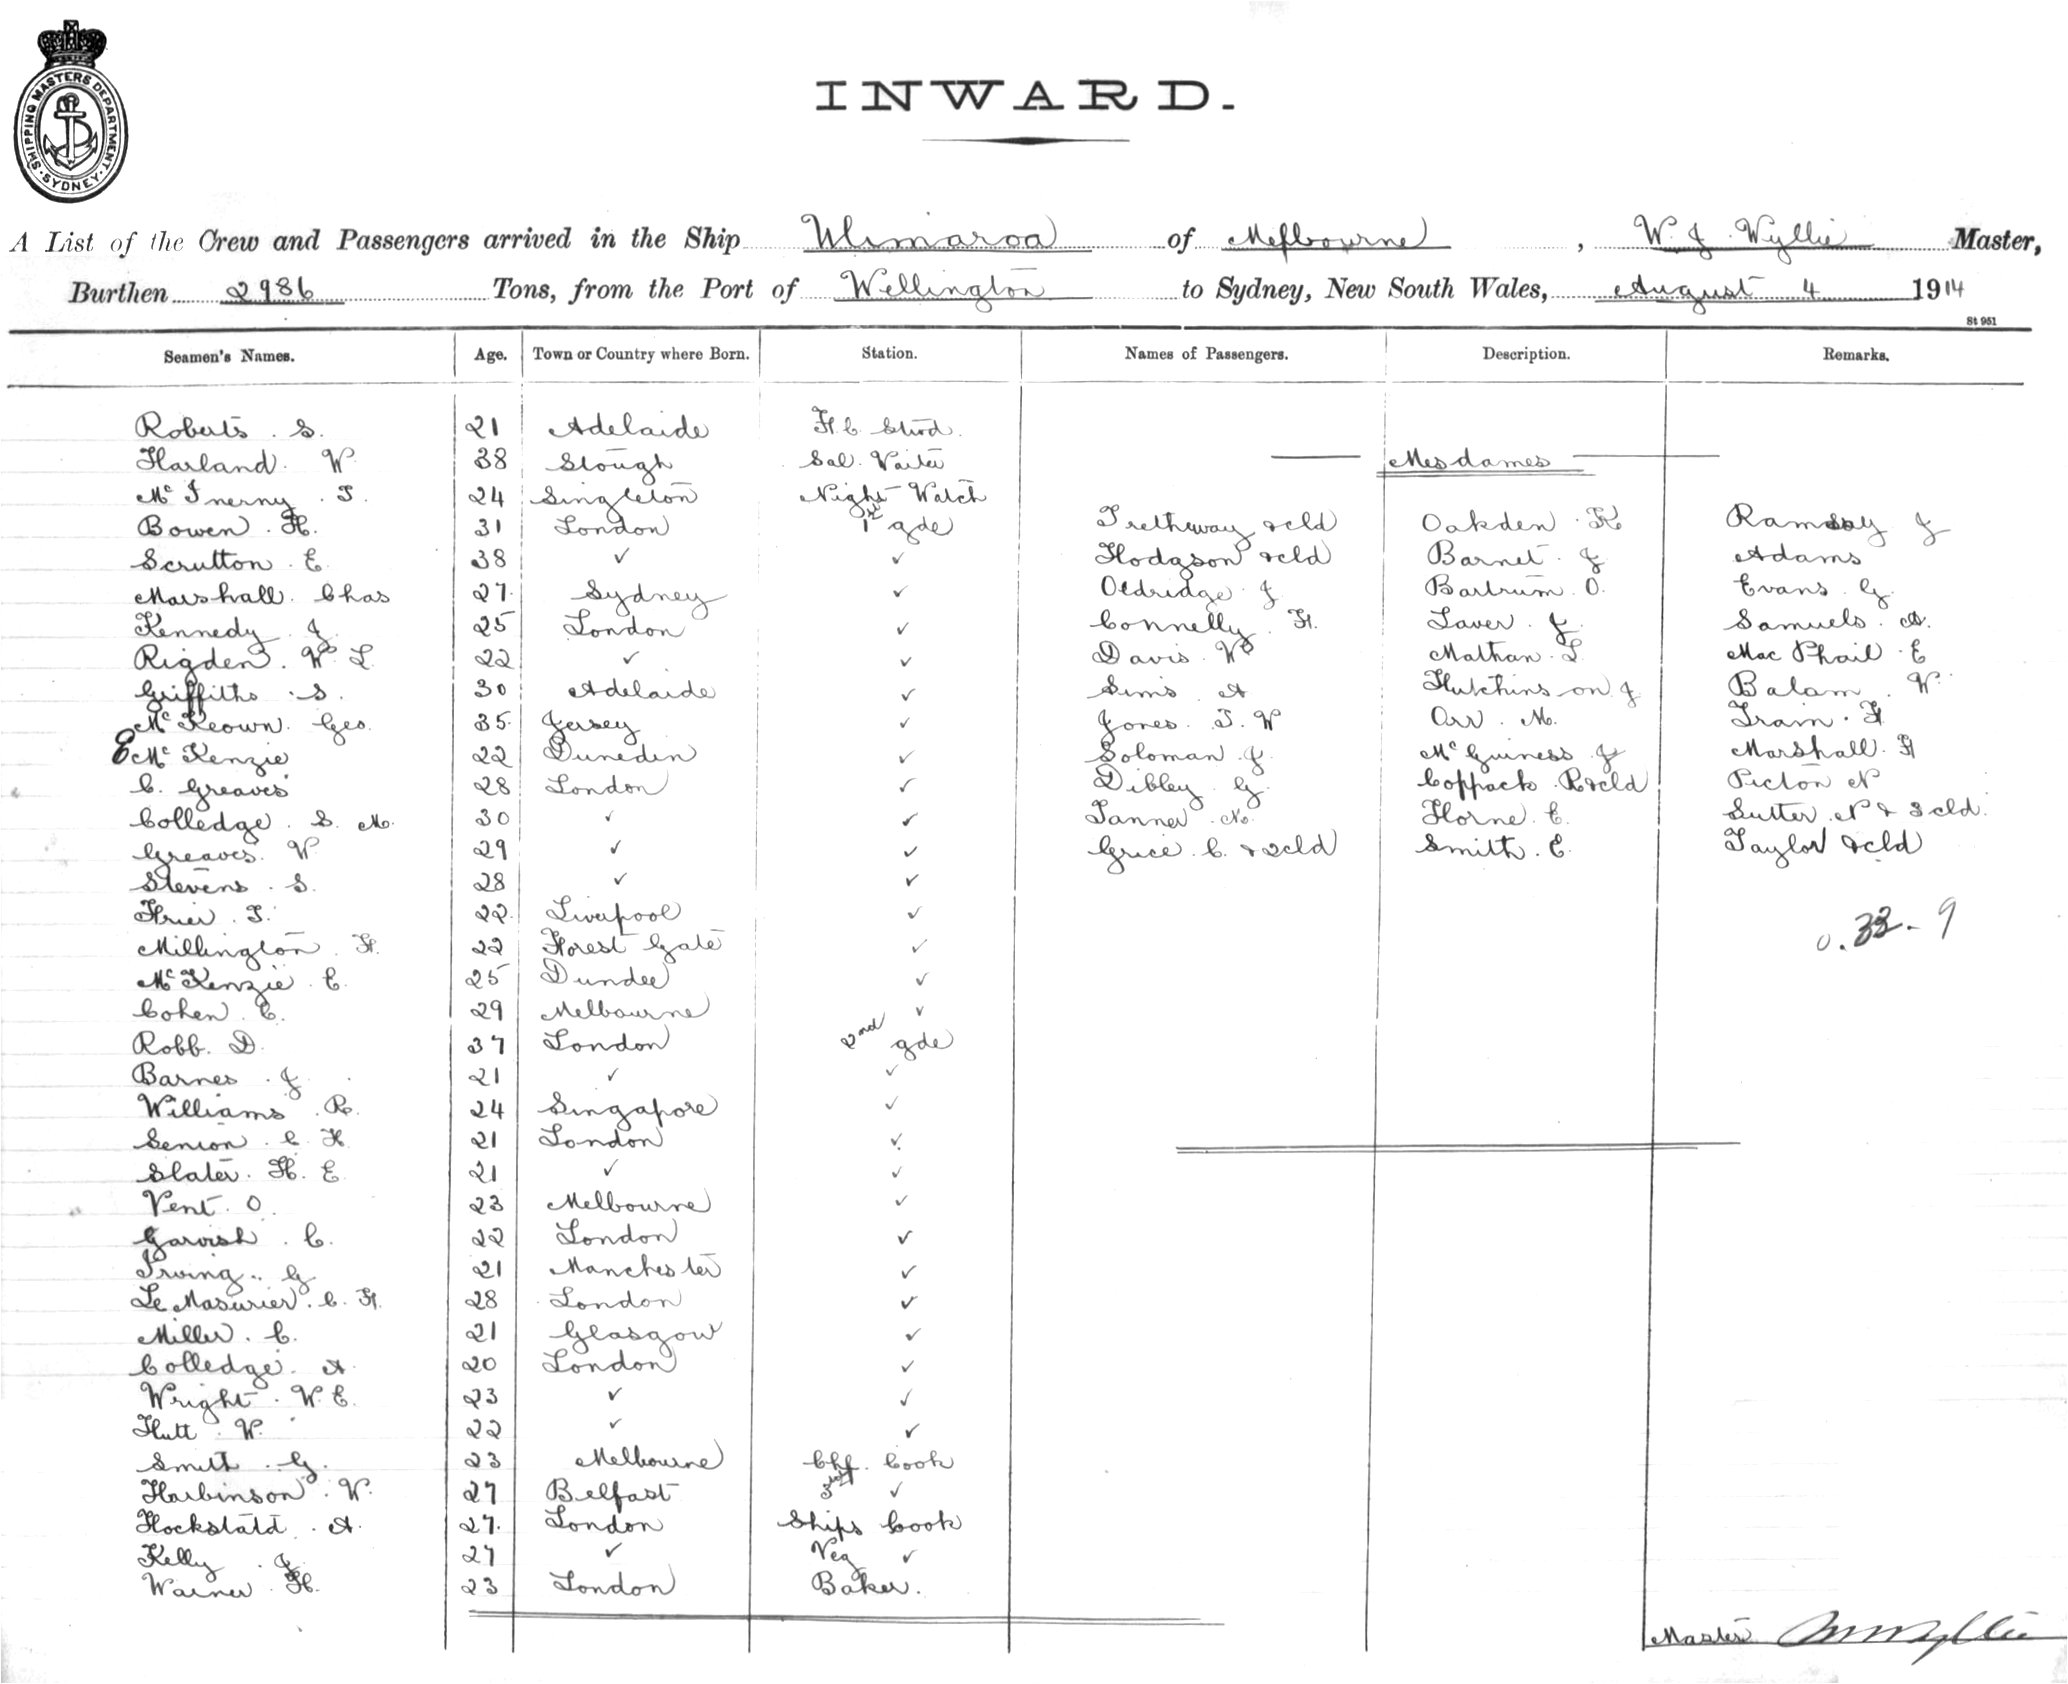 SHIPPING MASTERS DEPARTMENT. SYDNEY.
INWARD.
A List of the Crew and Passengers arrived in the Ship Ulimaroa of Melbourne, W. J. Wyllie Master,
Burthen 2986 Tons, from the Port of Wellington to Sydney, New South Wales, August 4 1914
St 951
Seamen's Names. Age. Town or Country where Born. Station. Names of Passengers. Description. Remarks.
Roberts. S. 21 Adelaide F.C. Stwd.
Harland. W. 38 Slough Sal. Waiter Mesdames
McInerny. T. 24 Singleton Night Watch
Bowen. H. 31 London 1st gde Tretheway & cld Oakden. K Ramsay J
Scrutton. E. 38 ✓ ✓ Hodgson & cld Barnet. J Adams
Marshall. Chas 27. Sydney ✓ Oldridge. J Bartrum. O. Evans. G.
Kennedy. J. 25 London ✓ Connelly. H. Laver. J. Samuels. A.
Rigden. W. L. 22 ✓ ✓ Davis. W Mathan. L Mac Phail. E
Griffiths. S. 30 Adelaide ✓ Sims. A Hutchinson J Balam. W.
McKeown. Geo. 35. Jersey ✓ Jones. T. W Orr. M. Train. H
E McKenzie 22 Dunedin ✓ Soloman. J. McGuiness. J Marshall. H
C. Greaves 28 London ✓ Dibley. G. Coppack. R & cld Picton N
Colledge. S. M. 30 ✓ ✓ Tanner. N. Horne. E. Sutter. N & 3 cld.
Greaves. W 29 ✓ ✓ Grice. C. & 2 cld Smith. E. Taylor & cld
Stevens. S. 28 ✓ ✓
Frier. T. 22. Liverpool ✓
Millington. H. 22 Forest Gate ✓ 0. 33 - 9
McKenzie. C. 25 Dundee ✓
Cohen. C. 29 Melbourne ✓
Robb. D. 37 London 2nd gde
Barnes. J. 21 ✓ ✓
Williams. R. 24 Singapore ✓
Senior. C. H 21 London ✓
Slater. H. E. 21 ✓ ✓
Vent. O. 23 Melbourne ✓
Garvish. C. 22 London ✓
Irving. G 21 Manchester ✓
Le Masurier. C. H. 28 London ✓
Miller. C. 21 Glasgow ✓
Colledge. A. 20 London ✓
Wright. W. E. 23 ✓ ✓
Hutt. W. 22 ✓ ✓
Smith. G. 23 Melbourne Chf. Cook
Harbinson. W. 27 Belfast 3rd ✓
Hockstald. A. 27. London Ships Cook
Kelly. J. 27 ✓ Veg ✓
Warner. H. 23 London Baker.
Master W J Wyllie